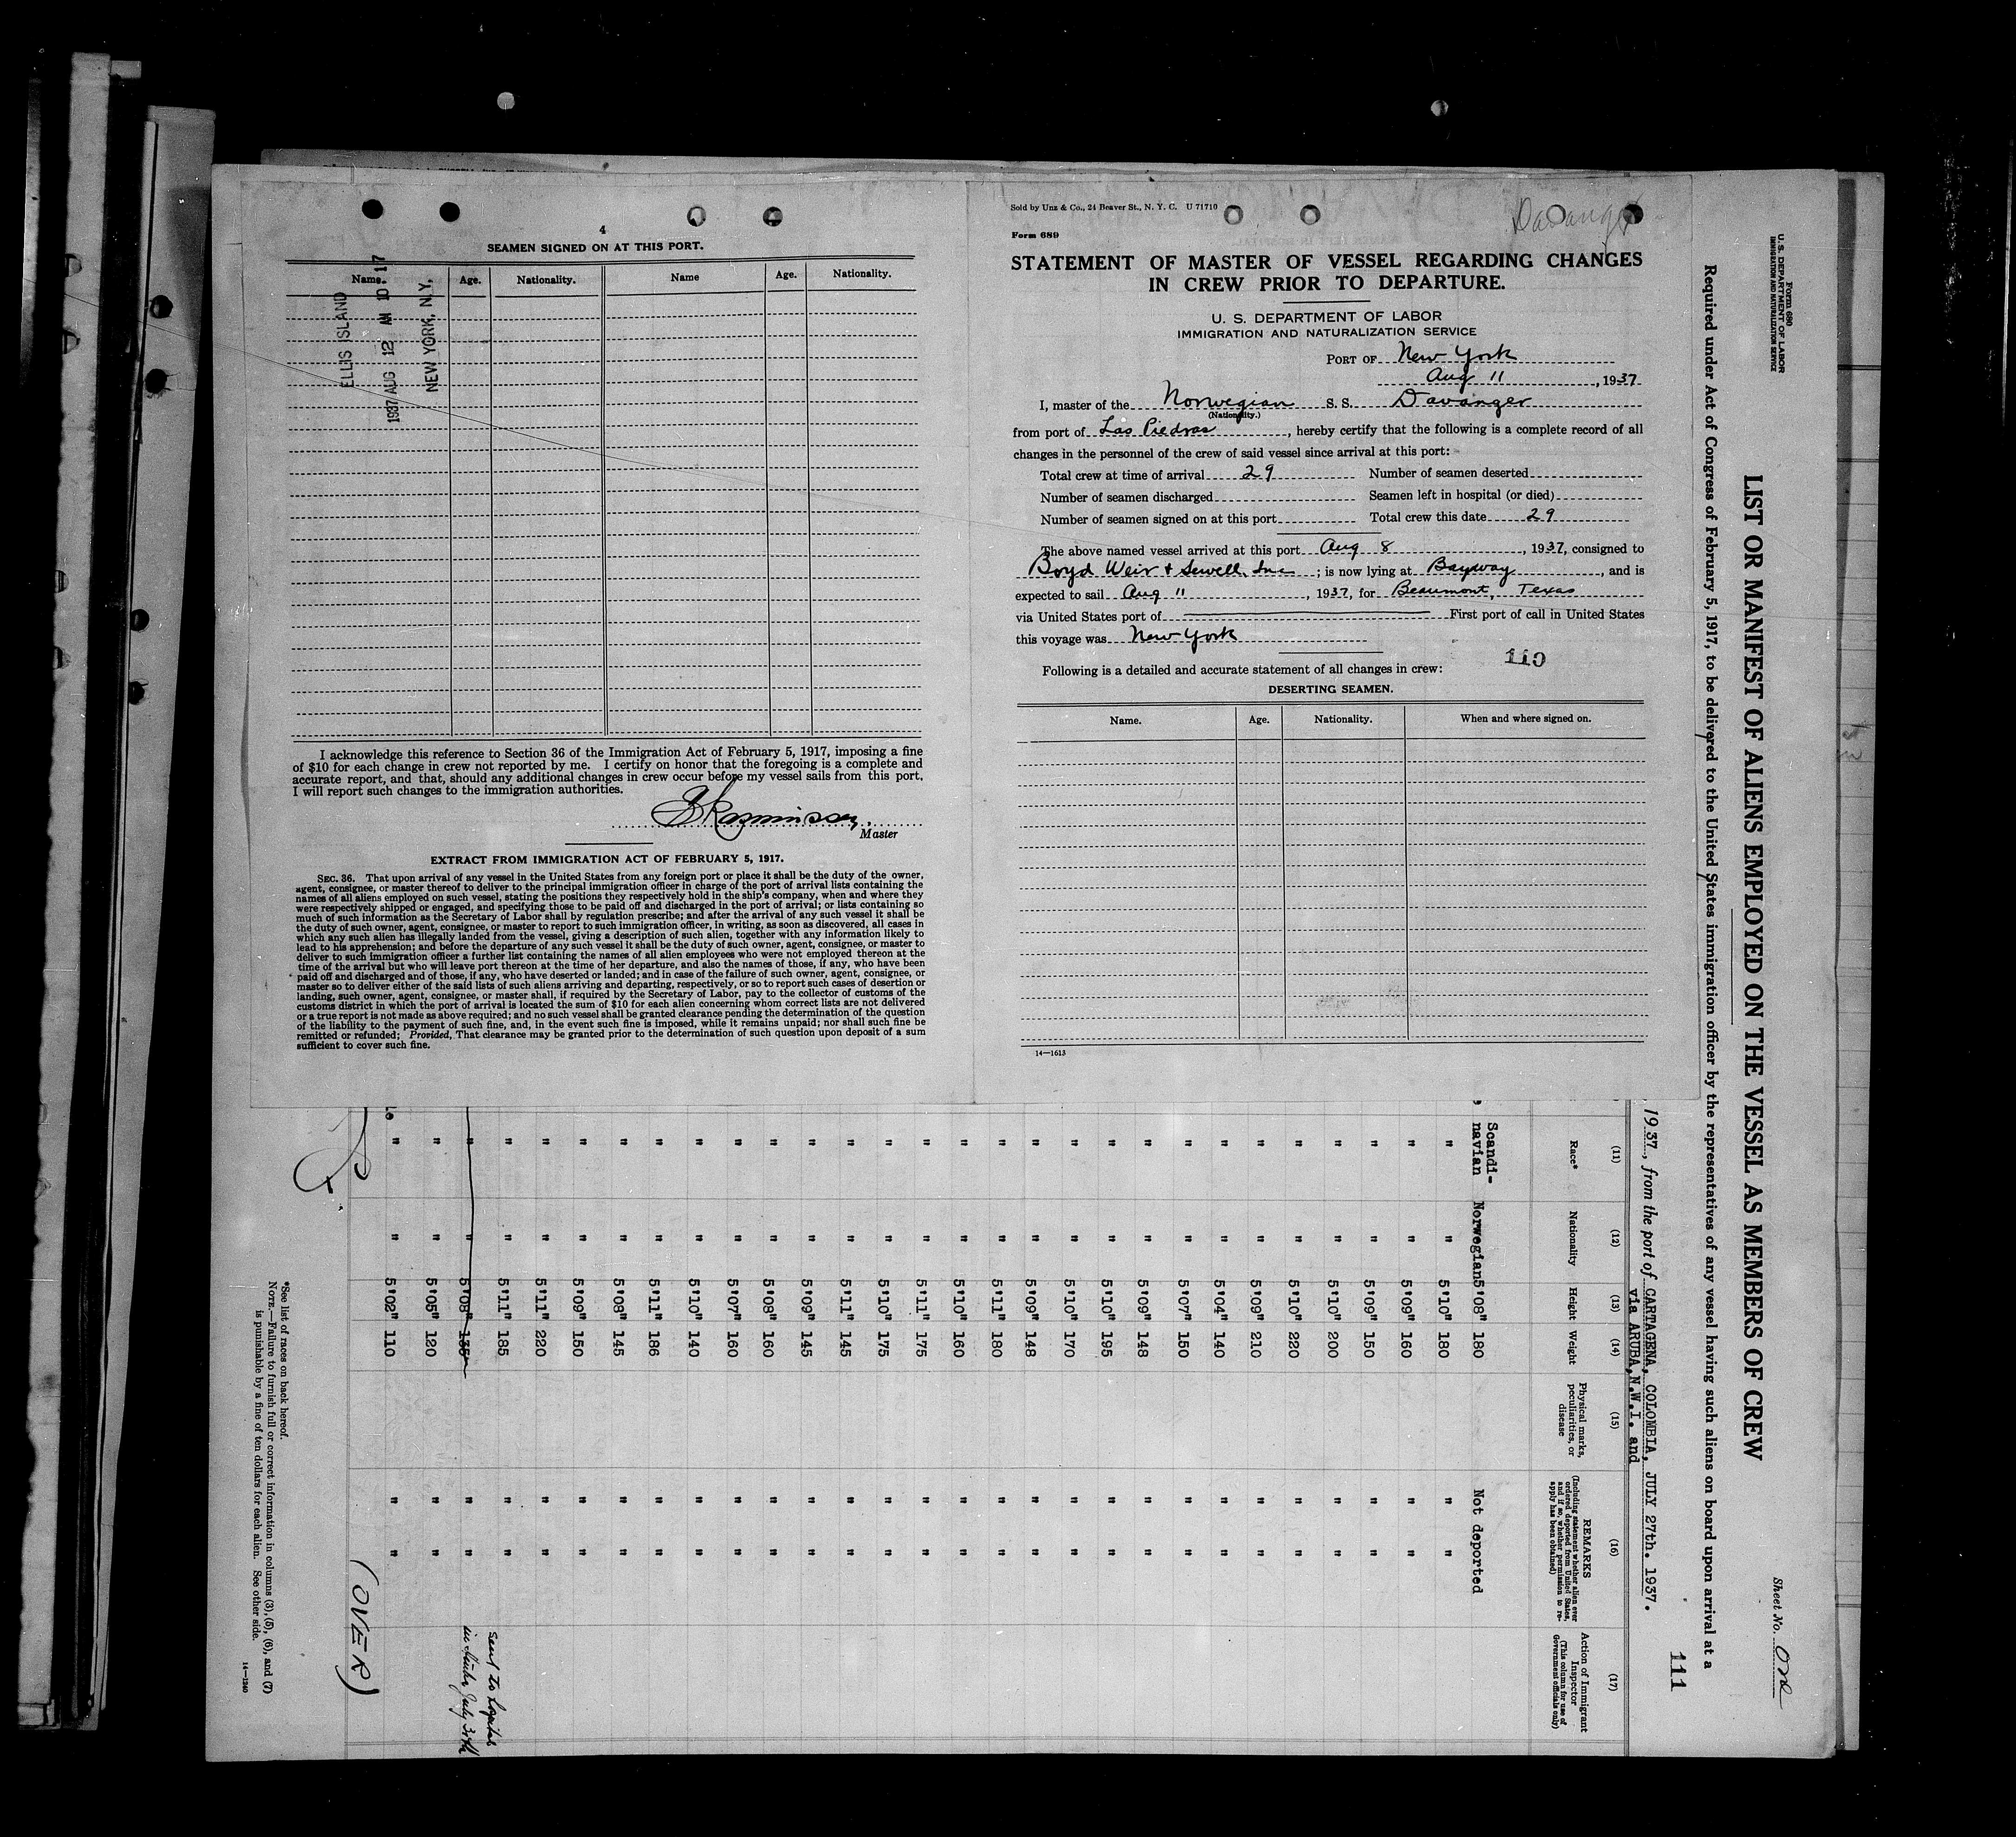 4
SEAMEN SIGNED ON AT THIS PORT.
Name. Age. Nationality. Name Age. Nationality.
ELLIS ISLAND
1937 AUG 12 AM 10 17
NEW YORK, N.Y.
I acknowledge this reference to Section 36 of the Immigration Act of February 5, 1917, imposing a fine
of $10 for each change in crew not reported by me. I certify on honor that the foregoing is a complete and
accurate report, and that, should any additional changes in crew occur before my vessel sails from this port,
I will report such changes to the immigration authorities.
Master
EXTRACT FROM IMMIGRATION ACT OF FEBRUARY 5, 1917.
SEC. 36. That upon arrival of any vessel in the United States from any foreign port or place it shall be the duty of the owner,
agent, consignee, or master thereof to deliver to the principal immigration officer in charge of the port of arrival lists containing the
names of all aliens employed on such vessel, stating the positions they respectively hold in the ship's company, when and where they
were respectively shipped or engaged, and specifying those to be paid off and discharged in the port of arrival; or lists containing so
much of such information as the Secretary of Labor shall by regulation prescribe; and after the arrival of any such vessel it shall be
the duty of such owner, agent, consignee, or master to report to such immigration officer, in writing, as soon as discovered, all cases in
which any such alien has illegally landed from the vessel, giving a description of such alien, together with any information likely to
lead to his apprehension; and before the departure of any such vessel it shall be the duty of such owner, agent, consignee, or master to
deliver to such immigration officer a further list containing the names of all alien employees who were not employed thereon at the
time of the arrival but who will leave port thereon at the time of her departure, and also the names of those, if any, who have been
paid off and discharged and of those, if any, who have deserted or landed; and in case of the failure of such owner, agent, consignee, or
master so to deliver either of the said lists of such aliens arriving and departing, respectively, or so to report such cases of desertion or
landing, such owner, agent, consignee, or master shall, if required by the Secretary of Labor, pay to the collector of customs of the
customs district in which the port of arrival is located the sum of $10 for each alien concerning whom correct lists are not delivered
or a true report is not made as above required; and no such vessel shall be granted clearance pending the determination of the question
of the liability to the payment of such fine, and, in the event such fine is imposed, while it remains unpaid; nor shall such fine be
remitted or refunded; Provided, That clearance may be granted prior to the determination of such question upon deposit of a sum
sufficient to cover such fine.
Sold by Unz & Co., 24 Beaver St., N. Y. C. U 71710
Davanger
Form 689
STATEMENT OF MASTER OF VESSEL REGARDING CHANGES
IN CREW PRIOR TO DEPARTURE.
U. S. DEPARTMENT OF LABOR
IMMIGRATION AND NATURALIZATION SERVICE
PORT OF New York
Aug 11, 1937
I, master of the Norwegian S. S. Davanger
(Nationality.)
from port of Las Piedras, hereby certify that the following is a complete record of all
changes in the personnel of the crew of said vessel since arrival at this port:
Total crew at time of arrival 29 Number of seamen deserted
Number of seamen discharged Seamen left in hospital (or died)
Number of seamen signed on at this port Total crew this date 29
The above named vessel arrived at this port Aug 8, 1937, consigned to
Boyd Weir & Sewell, Inc; is now lying at Bayway, and is
expected to sail Aug 11, 1937, for Beaumont, Texas
via United States port of First port of call in United States
this voyage was New York
110
Following is a detailed and accurate statement of all changes in crew:
DESERTING SEAMEN.
Name. Age. Nationality. When and where signed on.
14—1613
Form 680
U. S. DEPARTMENT OF LABOR
IMMIGRATION AND NATURALIZATION SERVICE
Sheet No. One
LIST OR MANIFEST OF ALIENS EMPLOYED ON THE VESSEL AS MEMBERS OF CREW
Required under Act of Congress of February 5, 1917, to be delivered to the United States immigration officer by the representatives of any vessel having such aliens on board upon arrival at a
111
1937, from the port of CARTAGENA, COLOMBIA, JULY 27th. 1937.
via ARUBA, N.W.I. and
(11) (12) (13) (14) (15) (16) (17)
Race* Nationality Height Weight Physical marks, peculiarities, or disease REMARKS (Including statement whether alien ever ordered deported from United States, and if so, whether permission to reapply has been obtained) Action of Immigrant Inspector (This column for use of Government officials only)
Scandi-
navian Norwegian 5'08" 180 Not deported
" " 5'10" 180 " "
" " 5'09" 160 " "
" " 5'09" 150 " "
" " 5'10" 200 " "
" " 5'10" 220 " "
" " 5'09" 210 " "
" " 5'04" 140 " "
" " 5'07" 150 " "
" " 5'09" 148 " "
" " 5'10" 195 " "
" " 5'10" 170 " "
" " 5'09" 148 " "
" " 5'11" 180 " "
" " 5'10" 160 " "
" " 5'11" 175 " "
" " 5'10" 175 " "
" " 5'11" 145 " "
" " 5'09" 145 " "
" " 5'08" 160 " "
" " 5'07" 160 " "
" " 5'10" 140 " "
" " 5'11" 186 " "
" " 5'08" 145 " "
" " 5'09" 150 " "
" " 5'11" 220 " "
" " 5'11" 185 " "
" " 5'08" 135 " " sent to hospital
July 30th
" " 5'05" 120 " "
" " 5'02" 110 " "
(OVER)
*See list of races on back hereof.
NOTE.—Failure to furnish full or correct information in columns (3), (5), (6), and (7)
is punishable by a fine of ten dollars for each alien. See other side.
14—1240